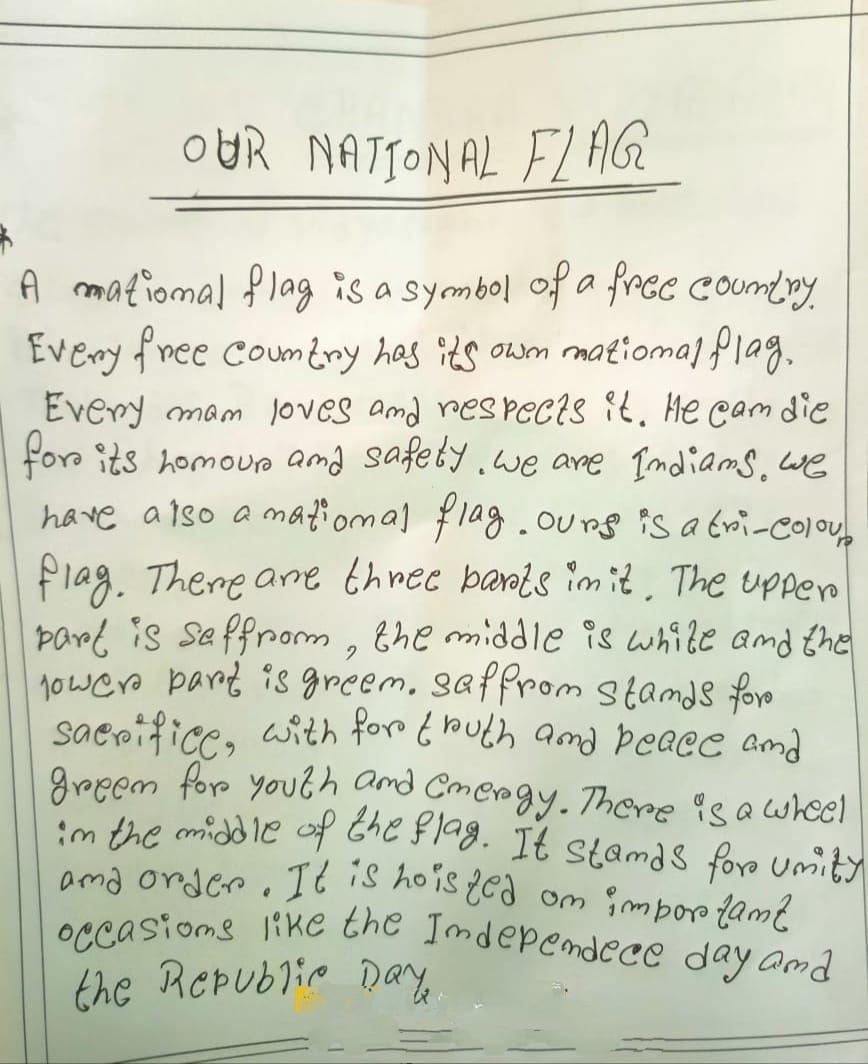 OUR NATIONAL FLAG
*
A national flag is a symbol of a free country.
Every free country has its own national flag.
Every man loves and respects it. He can die
for its honour and safety. we are Indians. we
have also a national flag. ours is a tri-colour
flag. There are three parts in it. The upper
part is saffron, the middle is white and the
lower part is green. saffron stands for
sacrifice, with for truth and peace and
green for youth and energy. There is a wheel
in the middle of the flag. It stands for unity
and order. It is hoisted on important
occasions like the Independece day and
the Republic Day.